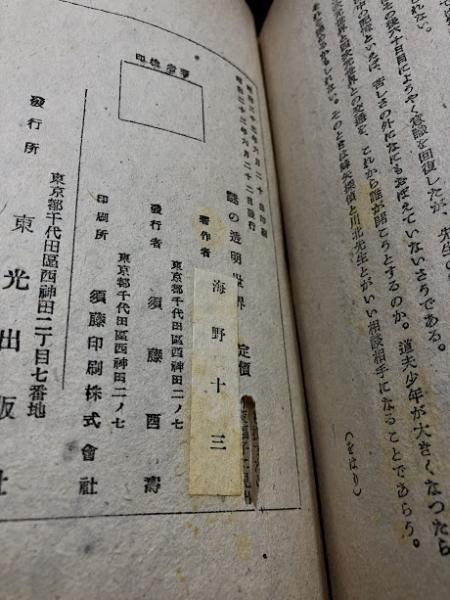 その後六十日目にようやく意識を回復したが、先生の
中の記憶といえば、苦しさの外になにもおぼえていないさうである。
次元世界と四次元世界との交通を、これから誰が開こうとするのか。道夫少年が大きくなつたら
それを詰めるかもしれない。そのときは蜂矢探偵と川北先生とがいい相談相手になることであらう。
(をはり)
昭和二十三年六月二十日印刷
昭和二十三年六月二十二日發行
謎の透明世界 定價
著作者 海野十三
發行者 須藤酉壽
東京都千代田區西神田二ノ七
印刷所 須藤印刷株式會社
東京都千代田區西神田二ノ七
發行所 東光出版社
東京都千代田區西神田二丁目七番地